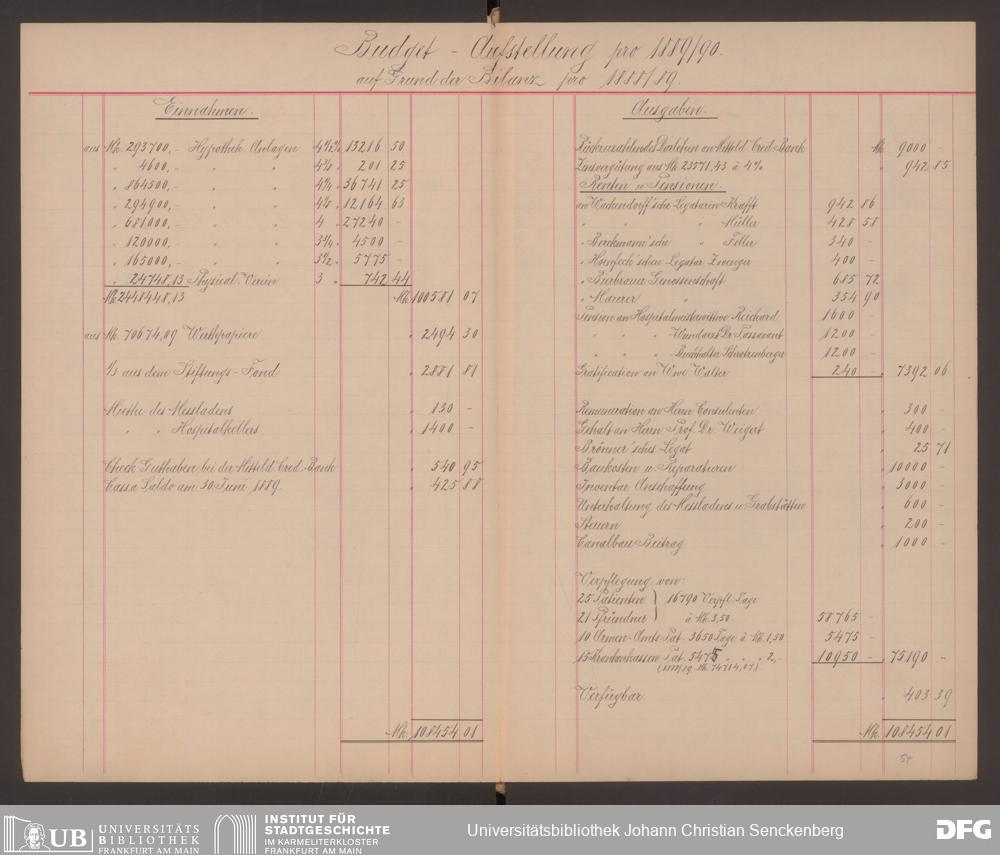 Budget - Aufstellung pro 1889/90.
auf Grund der Bilanz pro 1888/89.
Einnahmen.
aus Mk. 293700,- Hypothek Anlagen 4½% 13216 50
" 4600,- " " 4⅜ " 201 25
" 864500,- " " 4¼ " 36741 25
" 294900,- " " 4⅛ " 12164 63
" 681000,- " " 4 " 27240 -
" 120000,- " " 3¾ " 4500 -
" 165000,- " " 3½ " 5775 -
" 24748,13 Physical. Verein 3 " 742 44
Mk. 2448448,13 Mk. 100581 07
aus Mk. 70674,09 Werthpapiere " 2494 30
⅓ aus dem Stiftungs-Fond " 2881 81
Miethe des Messladens " 130 -
" " Hospitalkellers " 1400 -
Check Guthaben bei der Mitteld. Cred. Bank " 540 95
Cassa Saldo am 30. Juni 1889. " 425 88
Mk. 108454 01
Ausgaben.
Rückzuzahlendes Darlehen an Mitteld. Cred. Bank Mk. 9000 -
Zinsvergütung aus Mk. 23571,43 à 4% " 942 85
Renten u. Pensionen.
an Wachendorff'sche Legatarin Krafft 942 86
" " " Müller 428 58
" Berckmann'sche " Feller 340 -
" Legatar Zwenger 400 -
" Bierbrauer Genossenschaft 685 72
" Maurer " 354 90
Pension an Hospitalmeisterwittwe Reichard 1600 -
" " " Wundarzt Dr. Passavant 1200 -
" " " Buchhalter Schrotzenberger 1200 -
Gratification an Wwe. Walter 240 - " 7392 06
Remuneration an Herrn Consulenten " 300 -
Gehalt an Herrn Prof. Dr. Weigert " 400 -
Brönner'sches Legat " 25 71
Baukosten u. Reparaturen " 10000 -
Inventar Anschaffung " 3000 -
Unterhaltung des Messladens u. Grabstätten " 600 -
Steuern " 200 -
Canalbau Beitrag " 1000 -
Verpflegung von:
25 Patienten } 16790 Verpfl. Tage
21 Pfründner } à Mk. 3,50. 58765 -
10 Armen-Amts Pat. 3650 Tage à Mk. 1,50 5475 -
15 Krankenkassen Pat. 5475 " " " 2,- 10950 - " 75190 -
(1888/89 Mk. 74714,07)
Verfügbar " 403 39
Mk. 108454 01
UB UNIVERSITÄTS
BIBLIOTHEK
FRANKFURT AM MAIN
INSTITUT FÜR
STADTGESCHICHTE
IM KARMELITERKLOSTER
FRANKFURT AM MAIN
Universitätsbibliothek Johann Christian Senckenberg
DFG